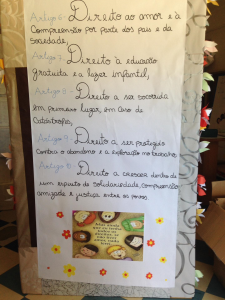 Artigo 6 Direito ao amor e à
Compreensão por parte dos pais e da
Sociedade,
Artigo 7 Direito à educação
gratuita e a lazer infantil,
Artigo 8 Direito a ser socorrida
em primeiro lugar, em caso de
Catástrofes,
Artigo 9 Direito a ser protegido
Contra o abandono e a exploração no trabalho;
Artigo 10 Direito a crescer dentro de
um espírito de solidariedade, compreensão,
amizade e justiça entre os povos.